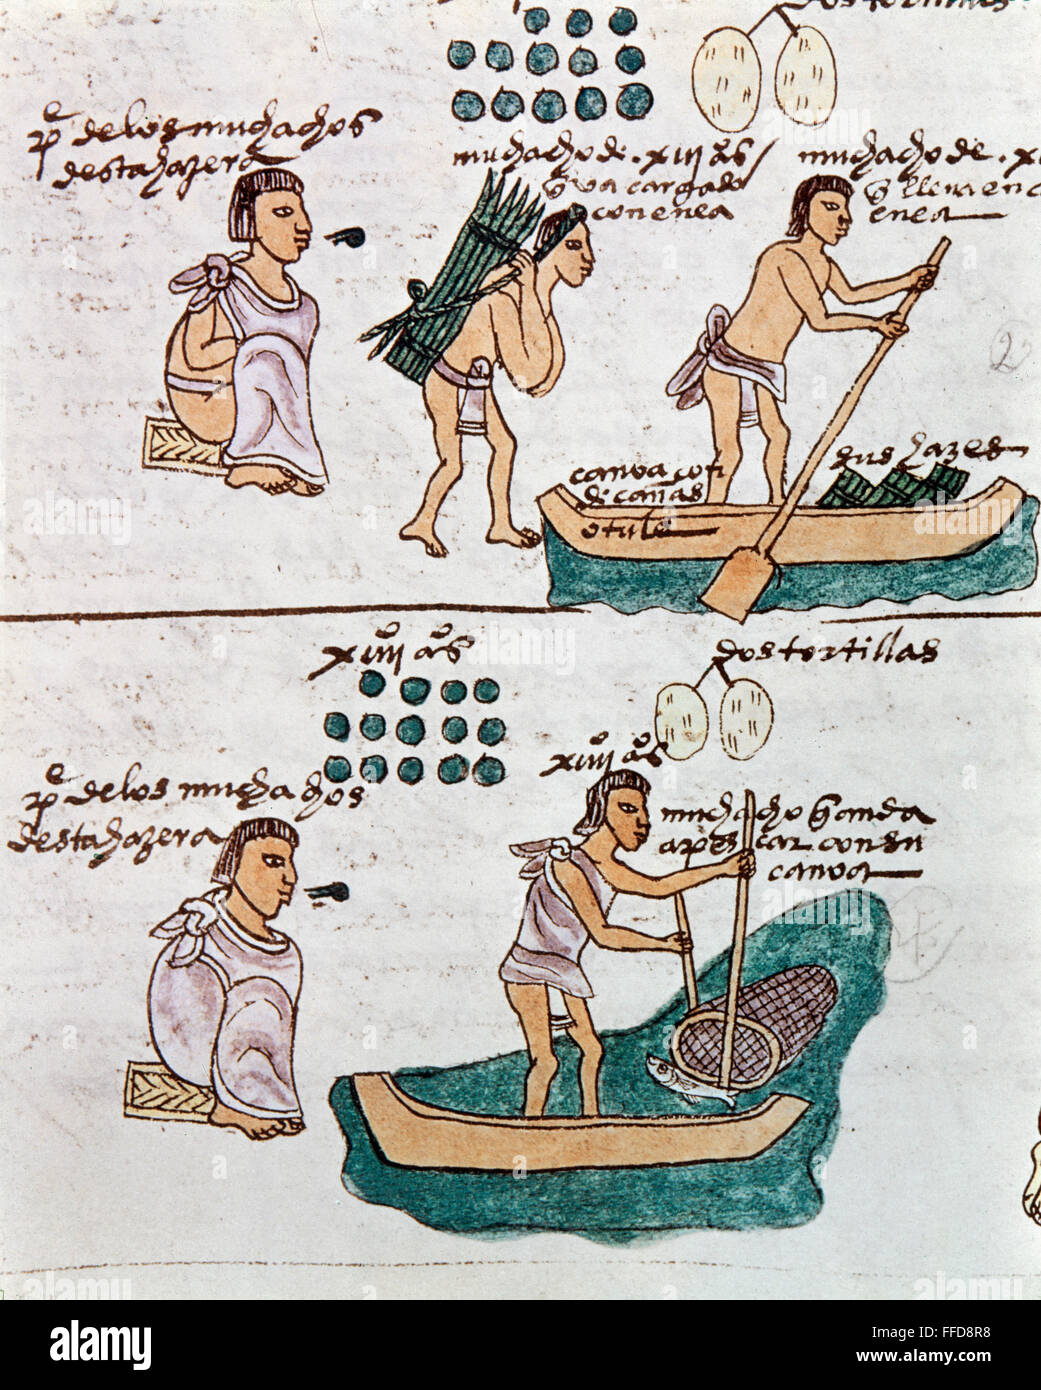 dos tortillas
pe de los muchachos
desta hazera
muchacho de xiii as
q va cargado
con enea
muchacho de x
q lleva en c
enea
canoa con
de cañas
o tule
sus hazes
2
xiiiio as
dos tortillas
pe de los muchachos
desta hazera
xiiiio as
muchacho q anda
a pescar con su
canoa
alamy
alamy stock photo
FFD8R8
www.alamy.com